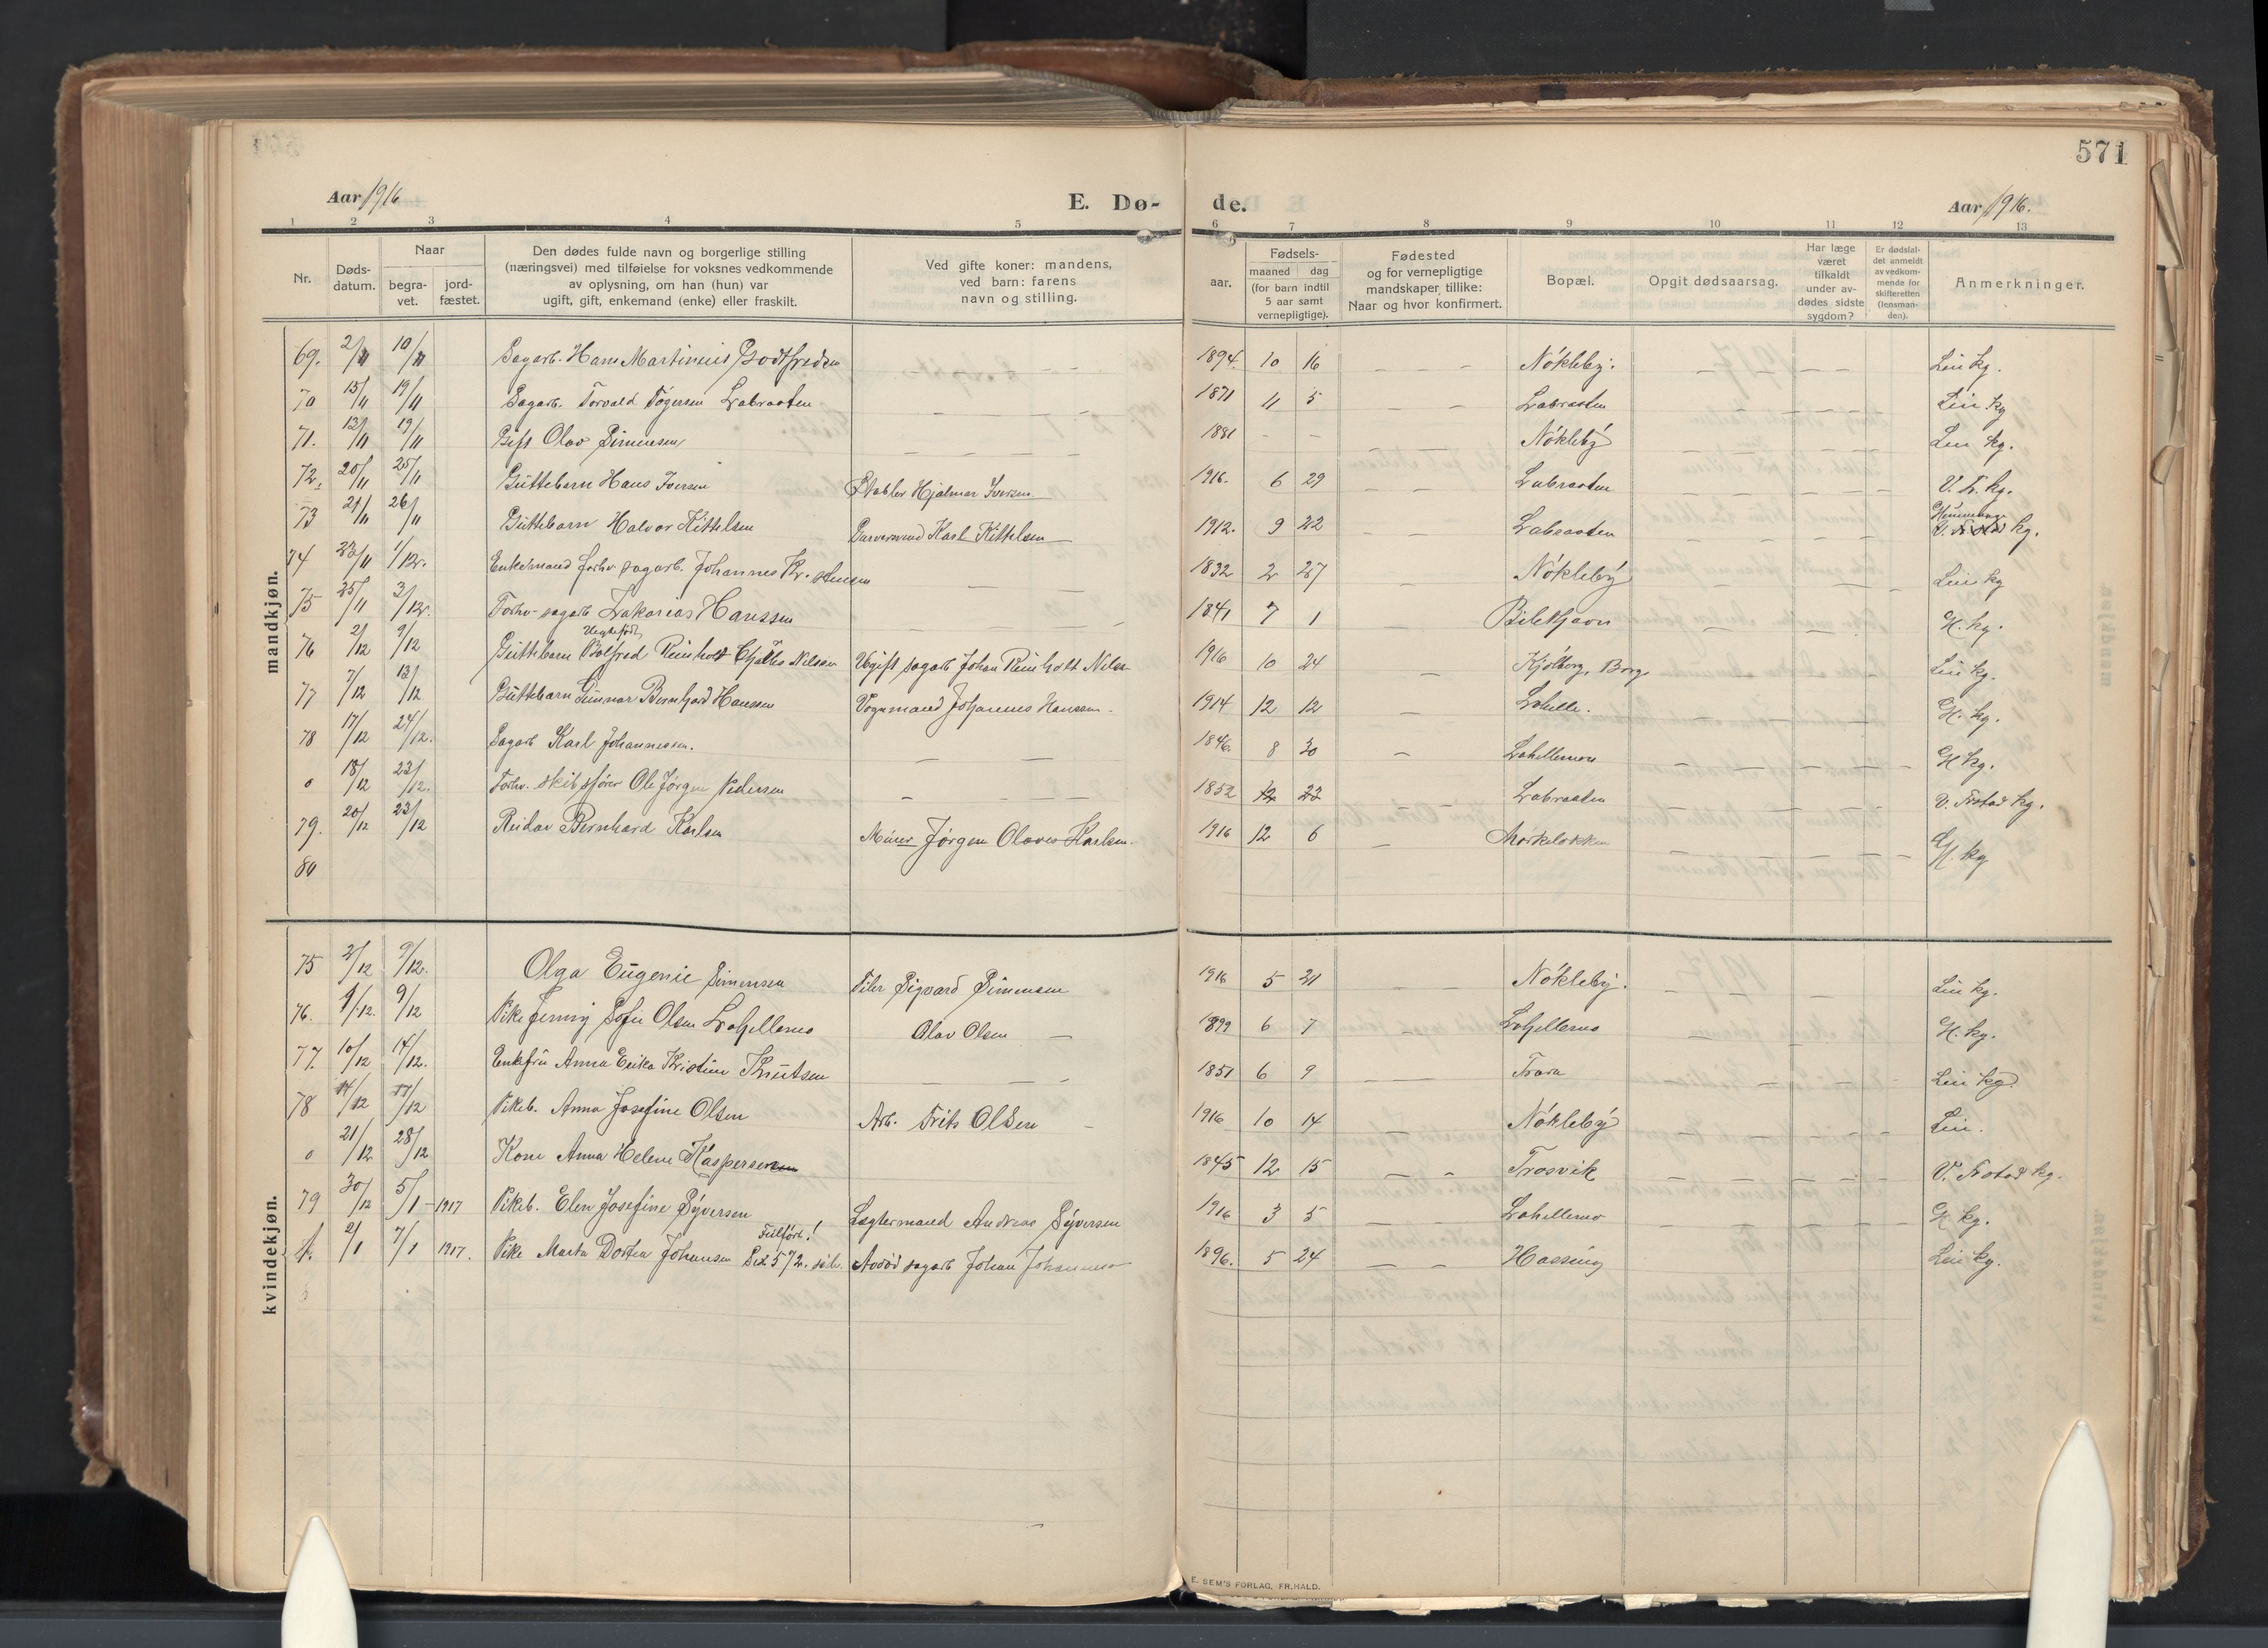 571
Aar 1916
E. Dø-
de.
Aar 1916.
1 2 3 4 5 6 7 8 9 10 11 12 13
Nr.
Døds-
datum.
Naar
begra-
vet.
jord-
fæstet.
Den dødes fulde navn og borgerlige stilling
(næringsvei) med tilføielse for voksnes vedkommende
av oplysning, om han (hun) var
ugift, gift, enkemand (enke) eller fraskilt.
Ved gifte koner: mandens,
ved barn: farens
navn og stilling.
aar.
Fødsels-
maaned dag
(for barn indtil
5 aar samt
vernepligtige).
Fødested
og for vernepligtige
mandskaper, tillike:
Naar og hvor konfirmert.
Bopæl.
Opgit dødsaarsag.
Har læge
været
tilkaldt
under av-
dødes sidste
sygdom?
Er dødsfal-
det anmeldt
av vedkom-
mende for
skifteretten
(lensman-
den).
Anmerkninger.
mandkjøn.
69. 2/11 10/11 Sagarb. Hans Martinius Godtfredsen — — 1894. 10 16 — — — Nøkleby. — — — — Lei kg.
70 15/11 19/11 Sagarb. Torvald Tøgersen Labraaten — — — 1871 11 5 — — Labraaten — — — Lei kg
71. 13/11 19/11 Gift Olav Simensen — — — 1881 - - Nøkleby — — — Lei kg.
72. 20/11 25/11 Guttebarn Hans Iversen Stabler Hjalmar Iversen 1916. 6 29 — — Labraaten — — — V. Fr. kg.
73 21/11 26/11 Guttebarn Halvor Kittelsen Garversvend Karl Kittelsen 1912. 9 22 — — Labraaten — — — V. kg.
74 23/11 1/12. Enkemand forhv. sagarb. Johannes Kr. — 1832 2 27 — Nøkleby — — Lei kg
75 25/11 3/12. Forhv. sagarb Zakarias Hanssen — — — 1841 7 1 — — — G. kg.
76 2/12 9/12 Uegtefødt
Guttebarn Reinholt Charles Nilsen Ugift sagarb Johan Reinholt Nilsen 1916 10 24 — Kjølberg, Borg — — Lei kg.
77 7/12 13/12 Guttebarn Gunnar Bernhard Hanssen Vognmand Johannes Hanssen 1914 12 12 — Lahelle. — — G. kg.
78 17/12 24/12. Sagarb Karl Johannessen. — — 1846. 8 30 — Lahellemoen — — G kg.
0 18/12 23/12. Forhv. skibsfører Ole Jørgen Pedersen — 1852 12 23 Labraaten — — V. Frstad kg.
79. 20/12 23/12 Reidar Bernhard Karlsen Murer Jørgen Olaves Karlsen. 1916 12 6 — — — G. kg
80
kvindekjøn.
75 3/12 9/12. Olga Eugenie Simensen Filer Sigvard Simensen 1916 5 21 Nøkleby. — — — Lei kg.
76. 4/12. 9/12 Pike Jenny Sofie Olsen Lahellemo Olav Olsen — 1899 6 7 — Lahellemo — — G. kg.
77. 10/12 14/12. Enkefru Anna Erika Kristine Knutsen — — 1851 6 9 — — Trara — — Lei kg.
78 14/12 17/12 Pikeb. Anna Josefine Olsen Arb. Frits Olsen 1916 10 14 — — Nøkleby — — Lei.
0 21/12 28/12 Kone Anna Helene Kaspersen 1845 12 15 — — Trosvik — — — V. Frstad kg.
79 30/12 5/1 - 1917 Pikeb. Elen Josefine Syversen Lægtermand Andreas Syversen 1916 3 5 — — Lahellemo — — G. kg.
1. 2/1 7/1 1917. Pike Marta Dortea Johansen Avdød sagarb Johan Johannes 1896. 5 24 — — Hassing Lei kg.
E. SEM'S FORLAG, FR.HALD.